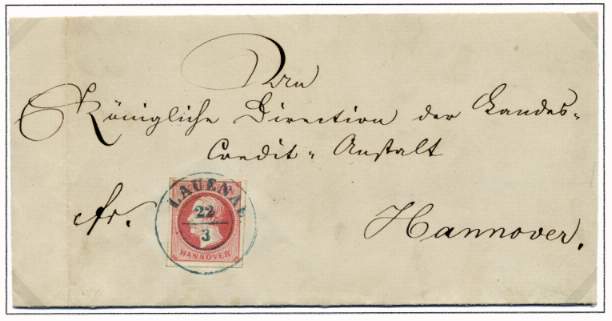 An
Königliche Direction der Landes-
Credit-Anstalt
fr.
Hannover.
LAUENAU
22
3
HANNOVER